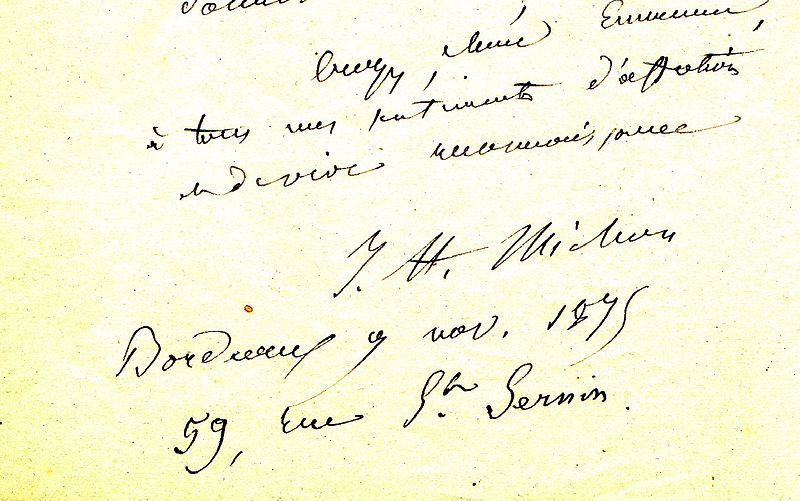 Croyez, chère
à tous mes sentiments d'affection
et de vive reconnaissance
J. H. Michon
Bordeaux 9 nov. 1875
59, rue St Sernin.